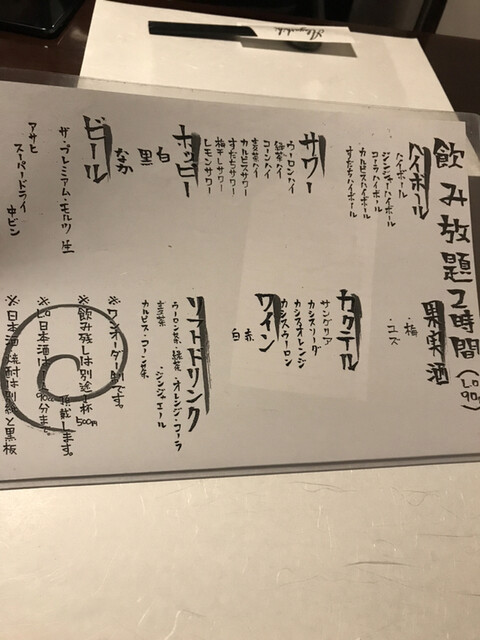 飲み放題2時間(L.O90分)
ハイボール
ハイボール
ジンジャーハイボール
コーラハイボール
カルピスハイボール
すだちハイボール
サワー
ウーロンハイ
緑茶ハイ
コーンハイ
麦茶ハイ
カルピスサワー
すだちサワー
梅干しサワー
レモンサワー
ホッピー
白
黒
なか
ビール
ザ・プレミアム・モルツ 生
アサヒ
スーパードライ
中ビン
果実酒
・梅
・ユズ
カクテル
サングリア
カシスソーダ
カシスオレンジ
カシスウーロン
ワイン
赤
白
ソフトドリンク
ウーロン茶・緑茶・オレンジ・コーラ
麦茶
・ジンジャエール
カルピス・コーン茶
※ワンオーダー制です。
※飲み残しは別途1杯500円
頂戴します。
※L.O日本酒は90分まで
※日本酒・焼酎は別紙と黒板